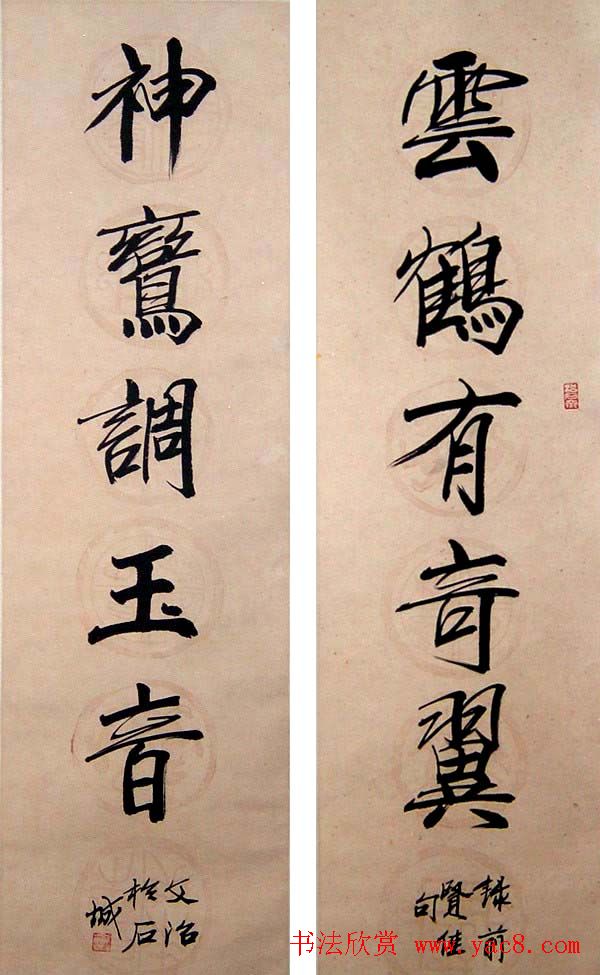 雲鶴有奇翼
録前
賢佳
句
神鸞調玉音
文治
於石
城
书法欣赏 www.yac8.com